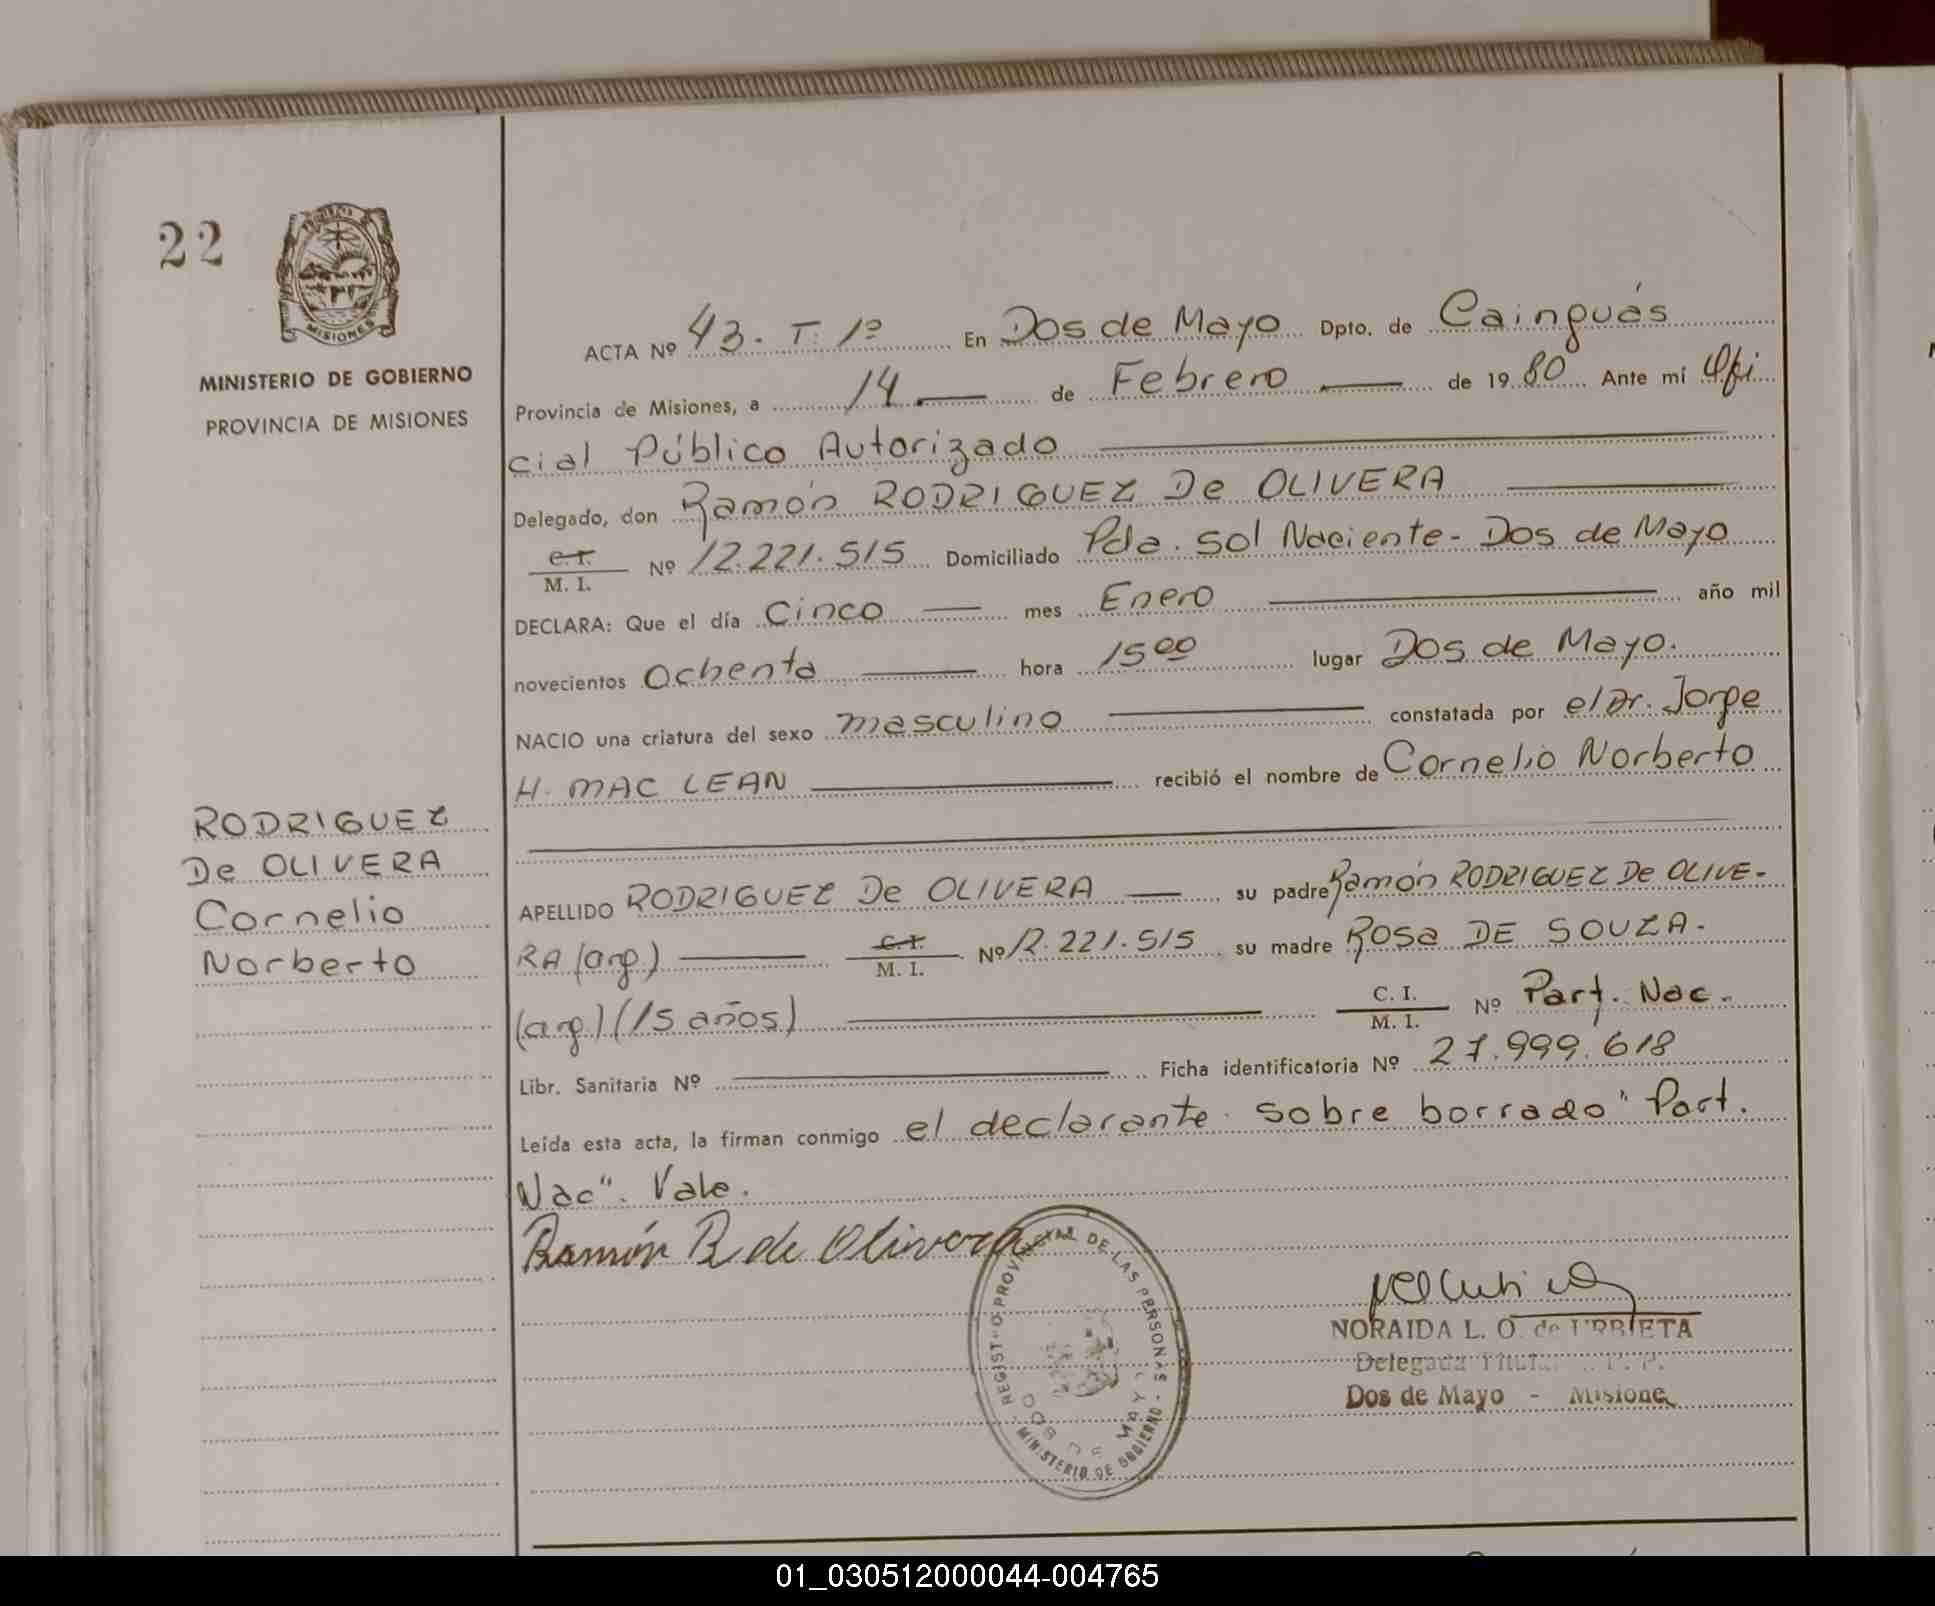 22
MISIONES
MINISTERIO DE GOBIERNO
PROVINCIA DE MISIONES
RODRIGUEZ
De OLIVERA
Cornelio
Norberto
ACTA Nº 43. T. 1º En Dos de Mayo Dpto. de Cainguás
Provincia de Misiones, a 14 — de Febrero — de 1980 Ante mí Ofi
cial Público Autorizado
Delegado, don Ramón RODRIGUEZ De OLIVERA
C.I.
M. I. Nº 12.221.515 Domiciliado Pda. Sol Naciente - Dos de Mayo
DECLARA: Que el día Cinco — mes Enero — año mil
novecientos Ochenta — hora 15 00 lugar Dos de Mayo.
NACIO una criatura del sexo masculino — constatada por el Dr. Jorge
H. MAC LEAN — recibió el nombre de Cornelio Norberto
APELLIDO RODRIGUEZ De OLIVERA — , su padre Ramón RODRIGUEZ De OLIVE-
RA (arg) — C.I. M. I. Nº 12.221.515, su madre Rosa DE SOUZA.
(arg) (15 años) — C. I. M. I. Nº Part. Nac.
Libr. Sanitaria Nº — Ficha identificatoria Nº 27.999.618
Leída esta acta, la firman conmigo el declarante. sobre borrado "Part.
Nac". Vale.
Ramón R de Olivera
REGISTRO PROVINCIAL DE LAS PERSONAS - MINISTERIO DE GOBIERNO -
DOS DE MAYO
NORAIDA L. O. de URBIETA
Delegada Titular P. P.
Dos de Mayo - Misiones
01_030512000044-004765